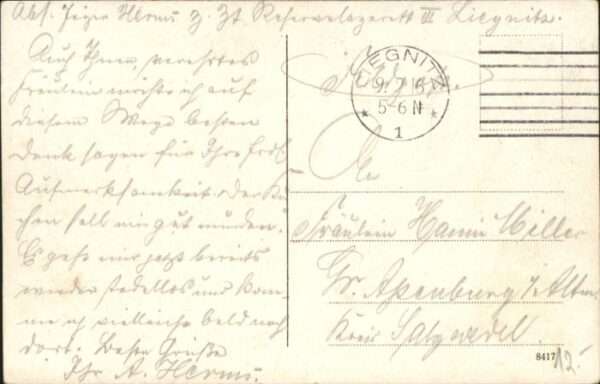 Abs. Jäger Herms z. Zt. Reservelazarett III Liegnitz.
Auch Ihnen, verehrtes
Fräulein möchte ich auf
diesem Wege besten
Dank sagen für Ihre frdl.
Aufmerksamkeit. Der Ku-
chen soll mir gut munden.
Es geht mir jetzt bereits
wieder tadellos und kom-
me ich vielleicht bald nach
dort. Besten Grüße
Ihr A. Herms.
Feldpost
LIEGNITZ
9. 7. 16
5-6 N
* 1 *
An
Fräulein Hanni Miller
Gr. Apenburg i/Altm.
Kreis Salzwedel.
8417
12.